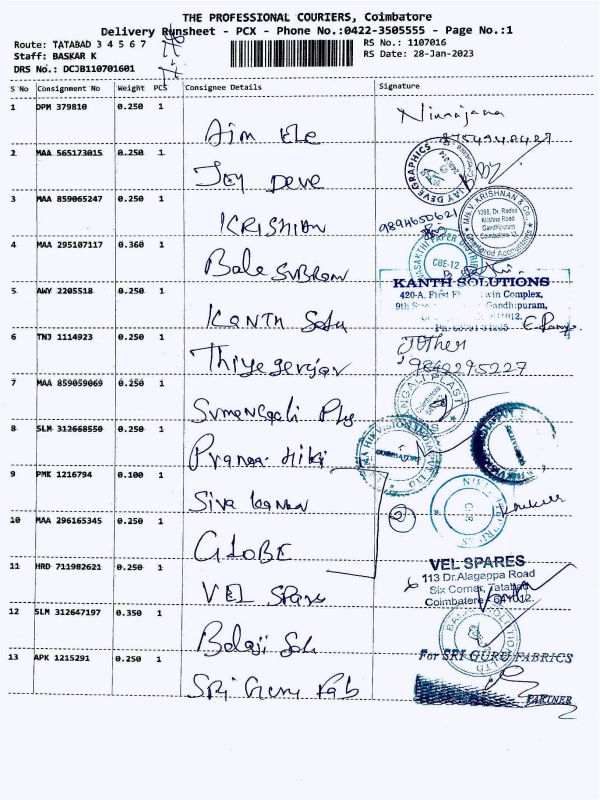 THE PROFESSIONAL COURIERS, Coimbatore
Delivery Runsheet - PCX - Phone No.:0422-3505555 - Page No.:1
Route: TATABAD 3 4 5 6 7
RS No.: 1107016
Staff: BASKAR K
RS Date: 28-Jan-2023
DRS No.: DCJB110701601
S No Consignment No Weight PCS Consignee Details Signature
1 DPM 379810 0.250 1
2 MAA 565173015 0.250 1 Jey Deve
JAY DEVEGRAPHICS
3 MAA 859065247 0.250 1 KRISHNAN
9894650621
M/s V. KRISHNAN & Co.,
1098, Dr. Radha
Krishna Road
Gandhipuram
Chartered Accountants
4 MAA 295107117 0.360 1 Bale SUBRAM
CBE-12
KANTH SOLUTIONS
420-A, First win Complex,
9th Gandhipuram,
5 AWY 2205518 0.250 1 KANTH Solu
6 TNJ 1114923 0.250 1 Thiyagerajan
Mother
9842295227
7 MAA 859059069 0.250 1
8 SLM 312668550 0.250 1 Pranaa Hiki
COIMBATORE
9 PMK 1216794 0.100 1 Siva kannan
10 MAA 296165345 0.250 1 GLOBE
2
11 HRD 711982621 0.250 1 VEL Spares
VEL SPARES
113 Dr.Alagappa Road
Six Corner, Tatabad
12 SLM 312647197 0.350 1 Balaji Solu
For SRI GURU FABRICS
13 APK 1215291 0.250 1 Sri Guru Fab
PARTNER